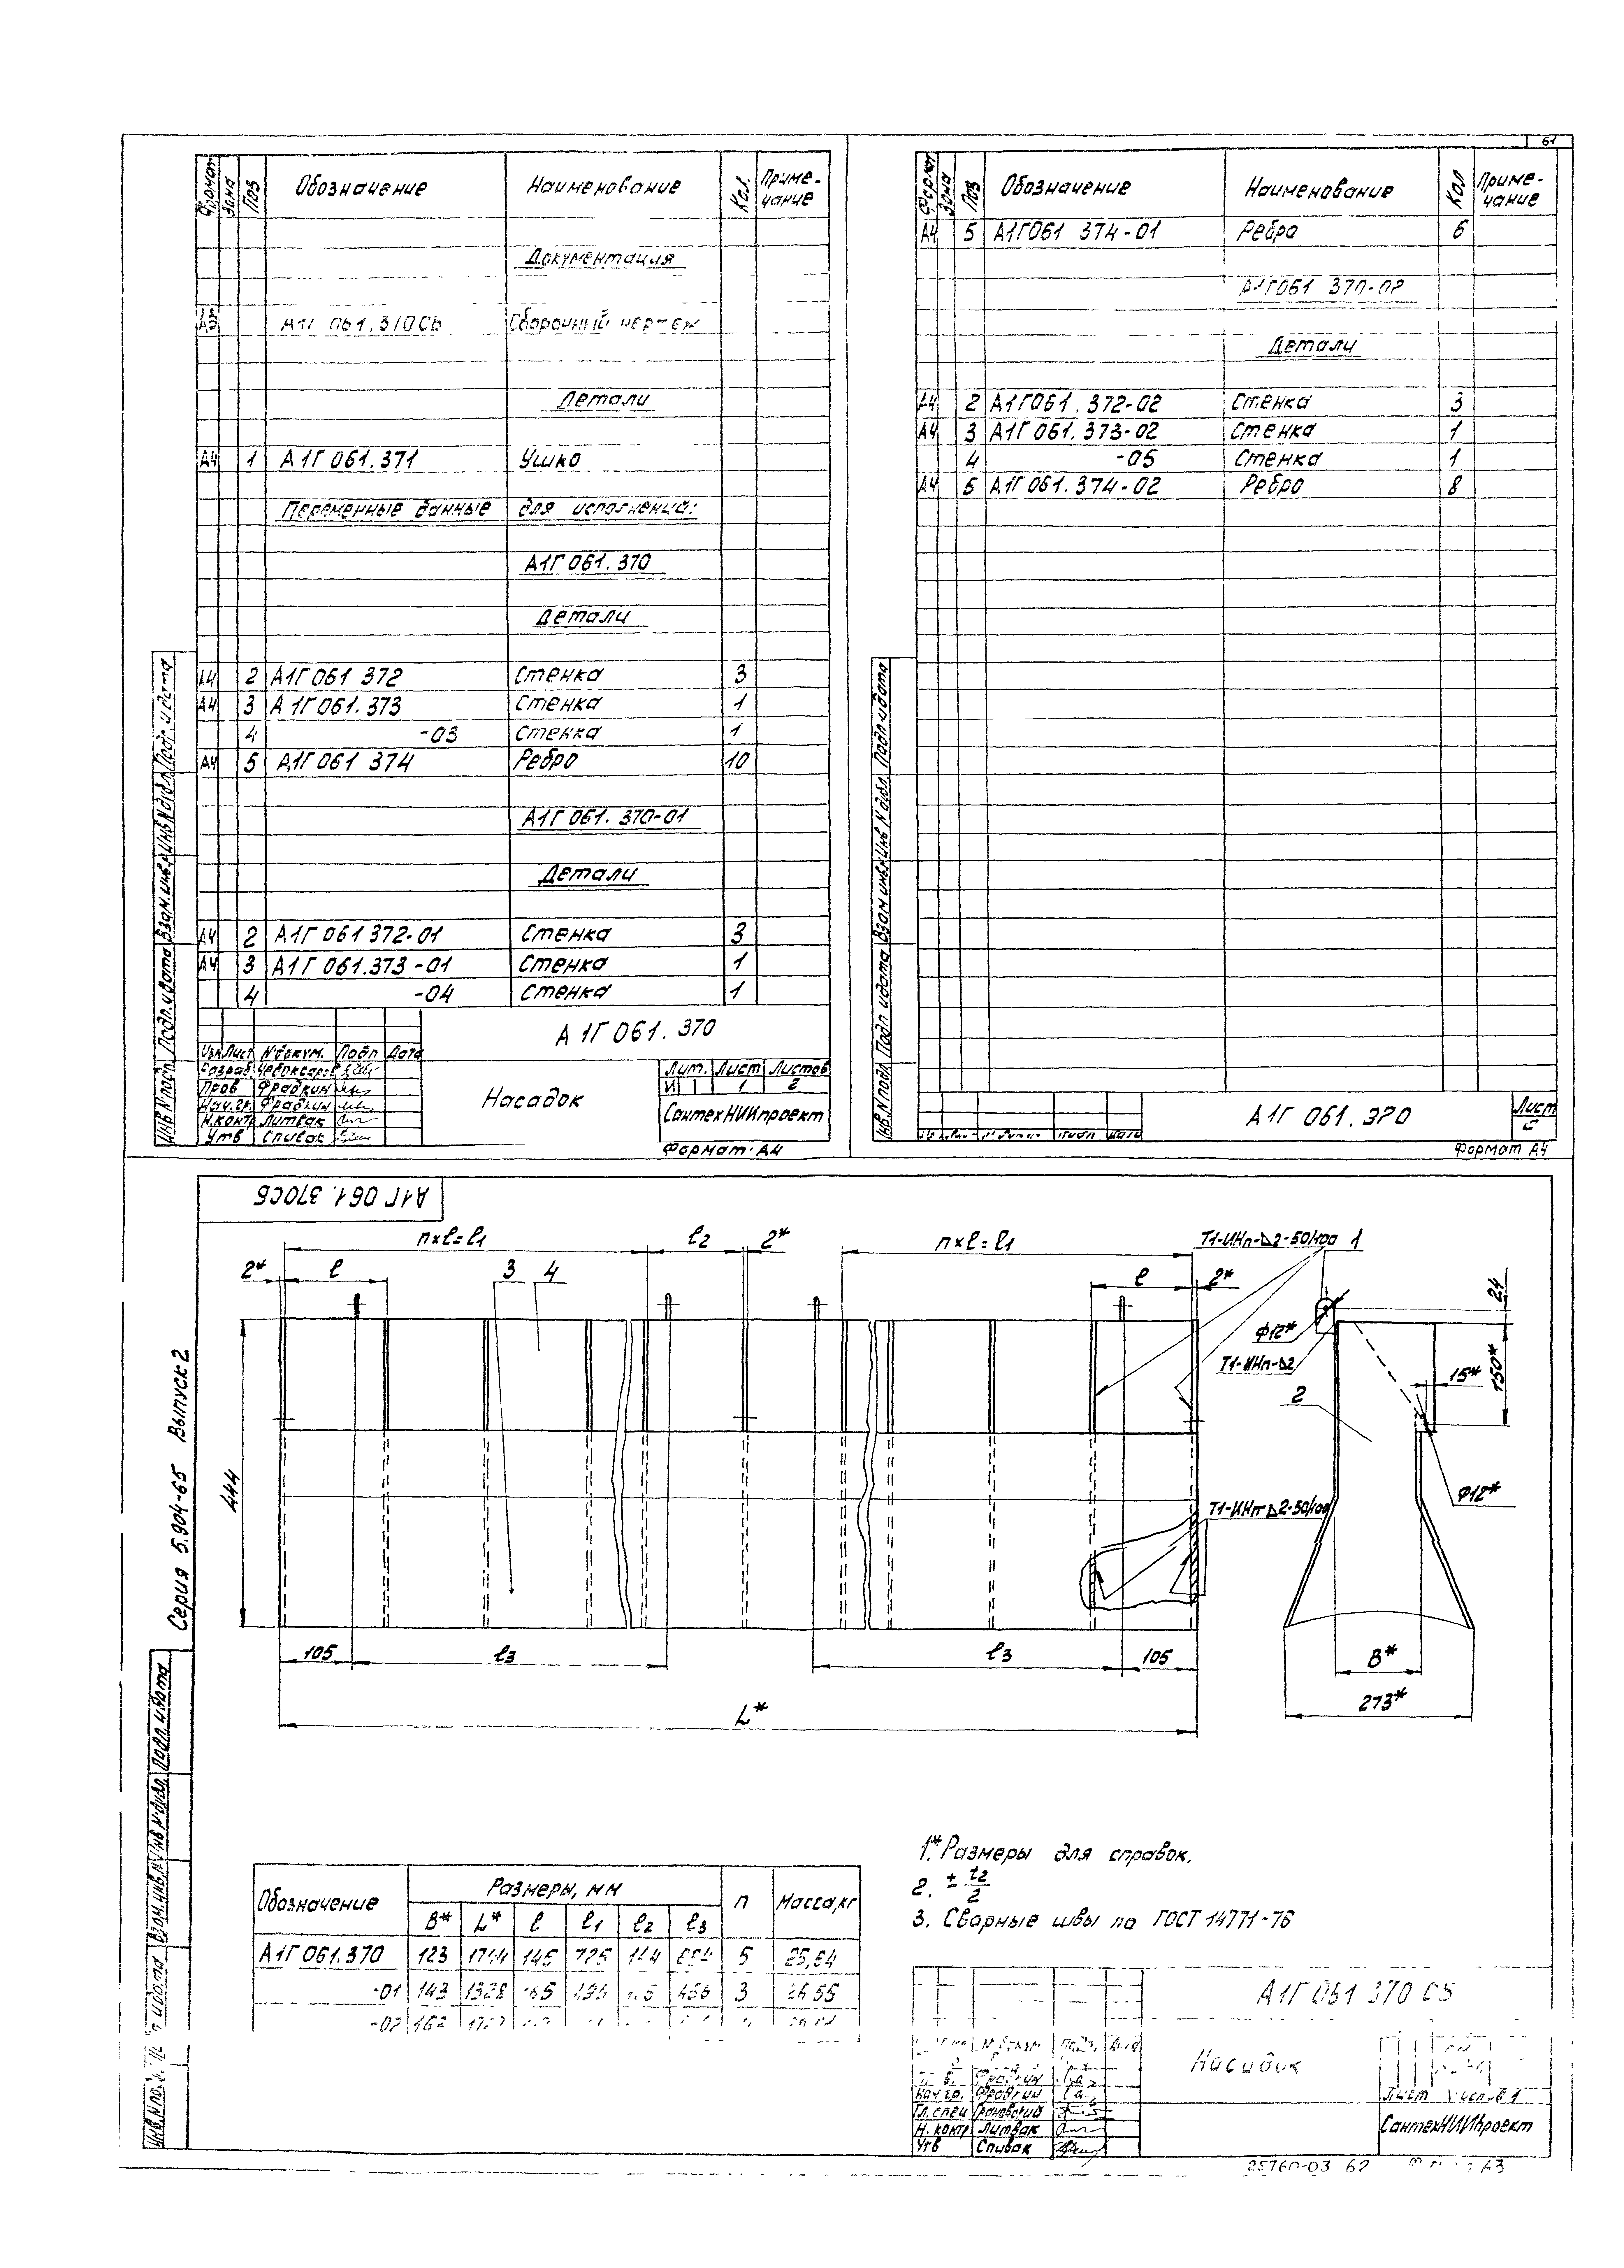 61
Формат Зона Поз Обозначение Наименование Кол. Приме-чание
Документация
Сборочный чертеж
Детали
А4 1 А1Г 061.371 Ушко
Переменные данные для исполнений:
А1Г 061. 370
Детали
А4 2 А1Г 061 372 Стенка 3
А4 3 А1Г 061. 373 Стенка 1
4 -03 Стенка 1
А4 5 А1Г 061 374 Ребро 10
А1Г 061. 370-01
Детали
А4 2 А1Г 061 372-01 Стенка 3
А4 3 А1Г 061.373-01 Стенка 1
4 -04 Стенка 1
А1Г 061. 370
Изм Лист № докум. Подп Дата
Разраб
Пров Фрадкин
Нач.гр. Фрадкин
Н.контр Литвак
Утв Спивак
Насадок
Лит. Лист Листов
И 1 2
СантехНИИпроект
Формат А4
Инв. № подл Подп. и дата Взам. инв. № Инв № дубл. Подп. и дата
Формат Зона Поз Обозначение Наименование Кол Приме-чание
А4 5 А1Г061 374-01 Ребро 6
А1Г061 370-02
Детали
А4 2 А1Г061. 372-02 Стенка 3
А4 3 А1Г 061. 373-02 Стенка 1
4 -05 Стенка 1
А4 5 А1Г 061. 374-02 Ребро 8
А1Г 061. 370
Лист
Формат А4
Инв. № подл Подп и дата Взам инв. № Инв № дубл. Подп и дата
А1Г 061. 370СБ
Серия 5.904-65 Выпуск 2
n×ℓ=ℓ1 ℓ2 2* n×ℓ=ℓ1 Т1-ИНп-△2-50/100 1
2* ℓ 3 4 ℓ 2* 24
Ф12*
Т1-ИНп-△2
15* 150*
2
444
Ф12*
Т1-ИНп-△2-50/100
105 ℓ3 ℓ3 105 В*
273*
L*
1.* Размеры для справок.
2. ± t2/2
3. Сварные швы по ГОСТ 14771-76
Обозначение Размеры, мм n Масса, кг
В* L* ℓ ℓ1 ℓ2 ℓ3
А1Г 061.370 123 145 725 144 5 25,54
-01 143 3
-02
А1Г 061 370 СБ
Насадок
Нач гр. Фрадкин
Гл. спец Грановский
Н. контр Литвак
Утв Спивак
Лист
СантехНИИпроект
25760-03 62
А3
Инв. № Взам. инв. № Инв № дубл. Подп. и дата